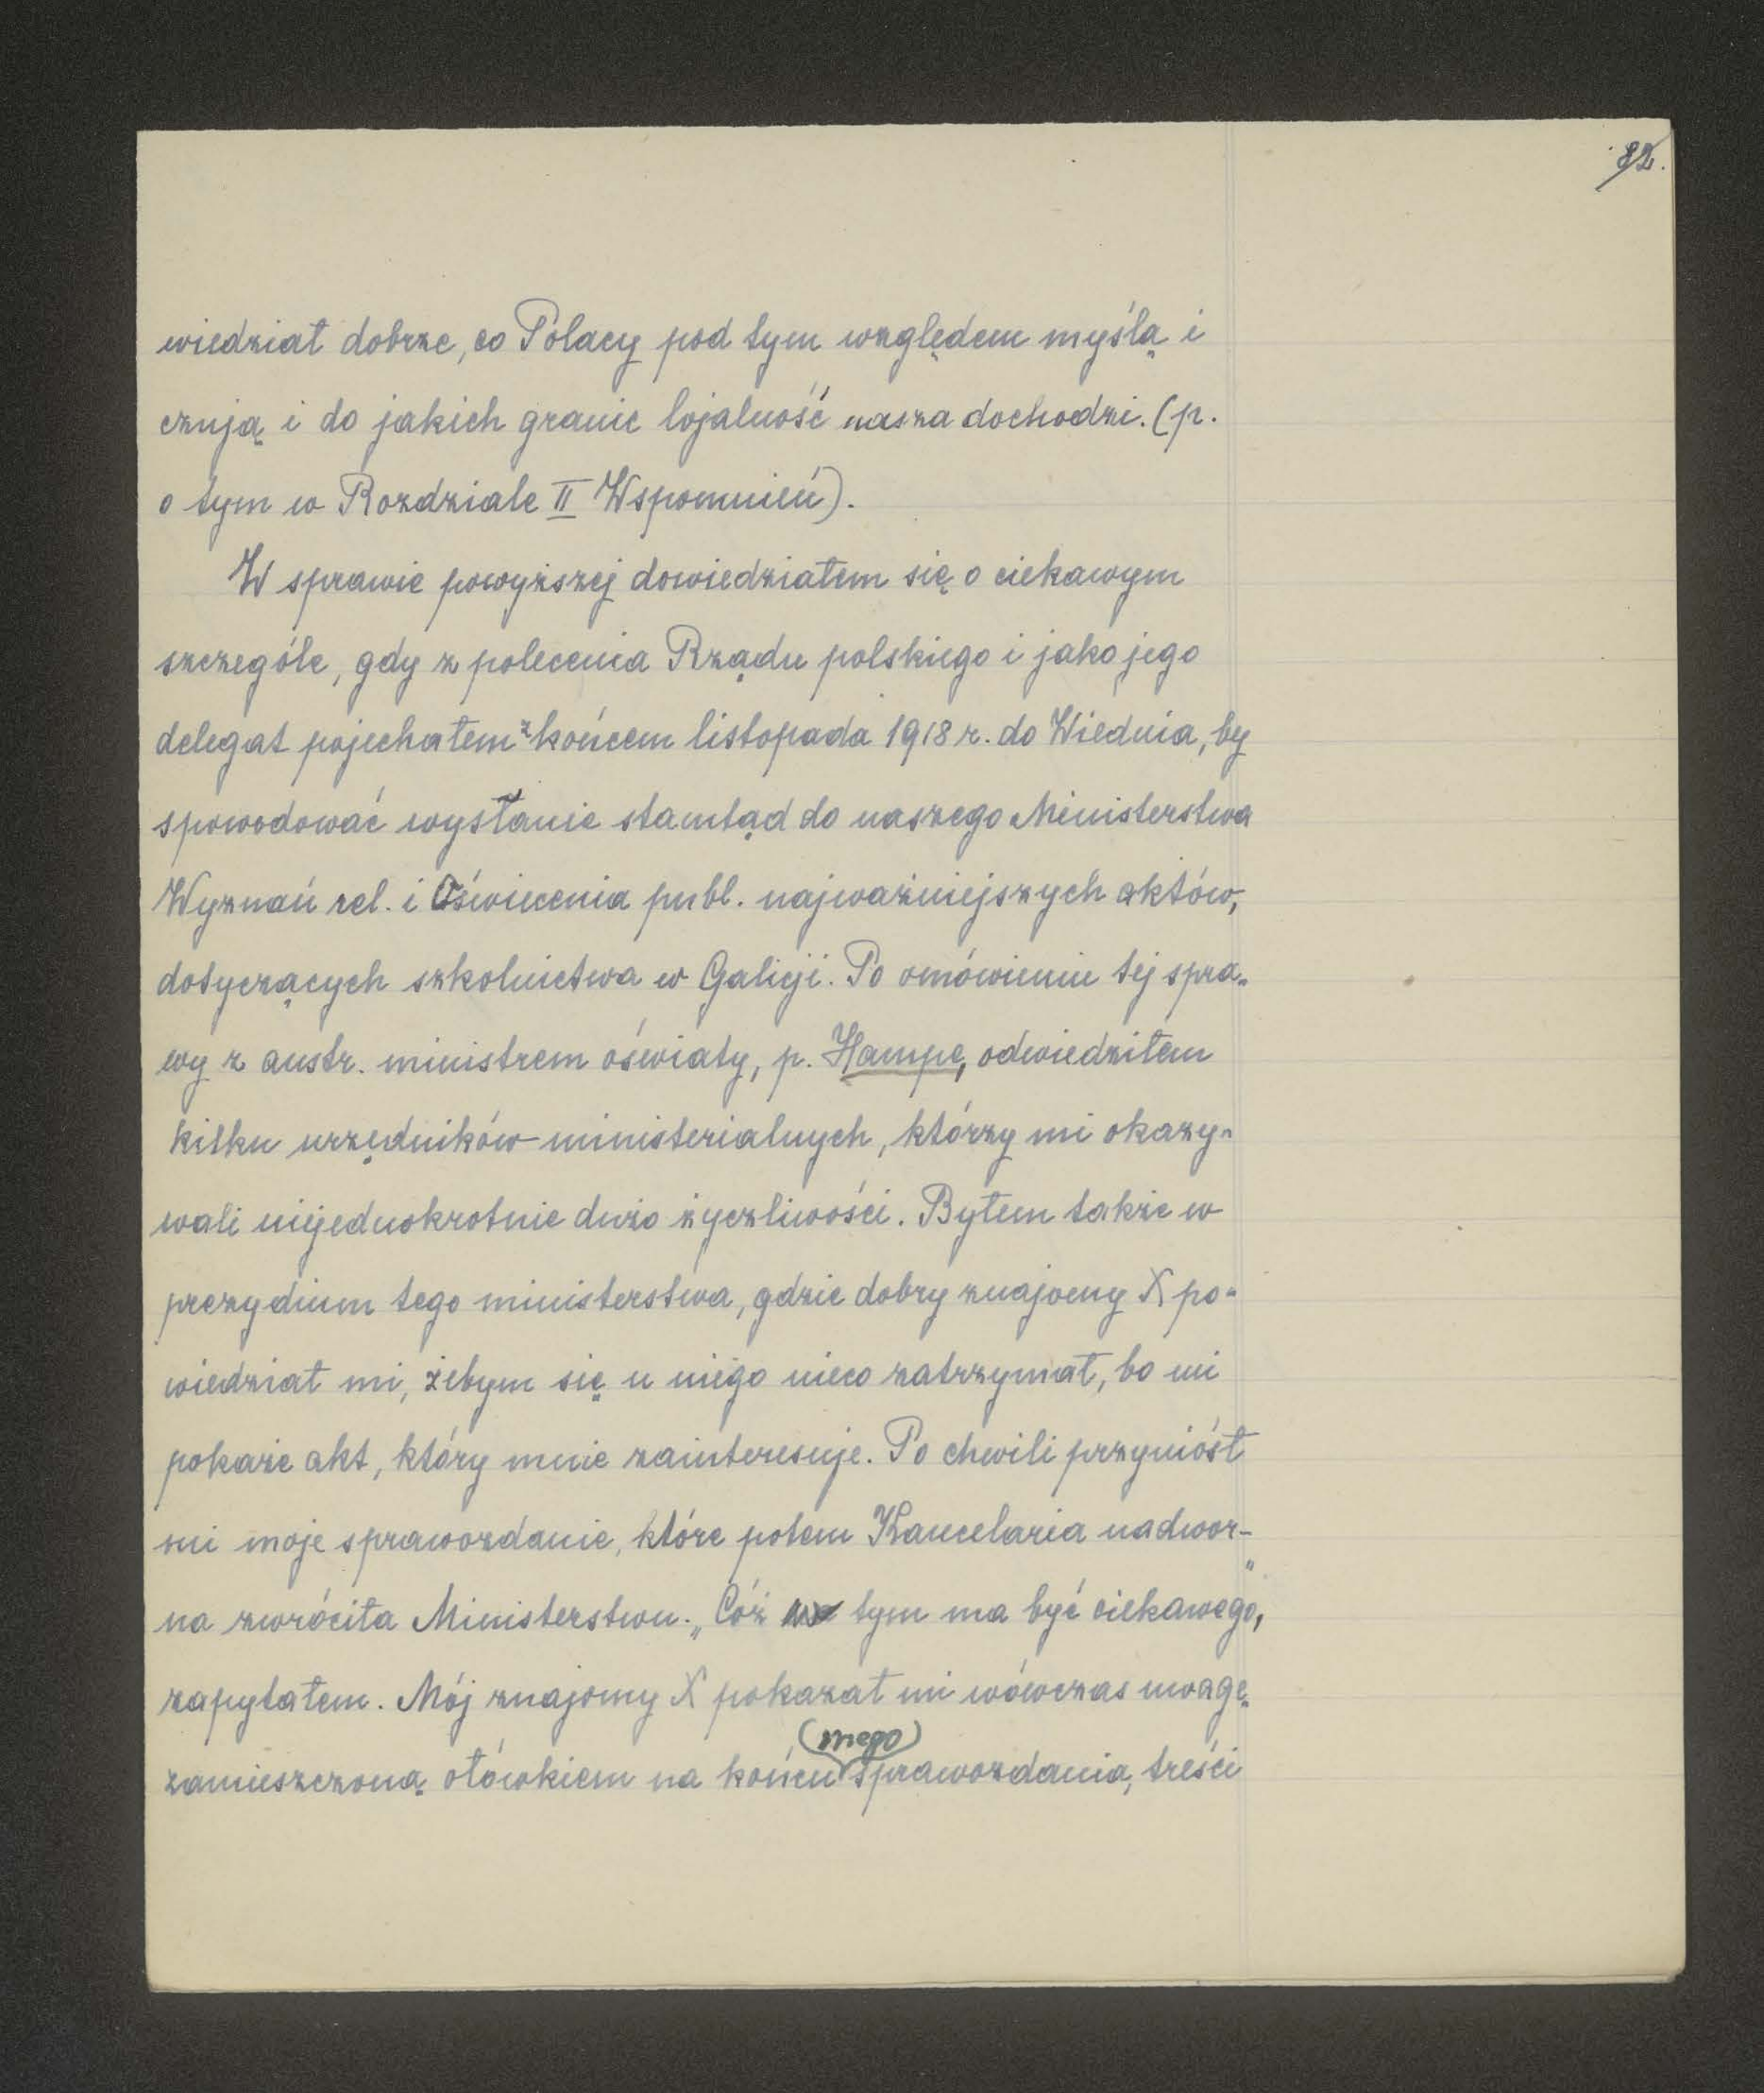 82.
wiedział dobrze, co Polacy pod tym względem myślą i
czują i do jakich granic lojalność nasza dochodzi. (p.
o tym w Rozdziale II Wspomnień).
W sprawie powyższej dowiedziałem się o ciekawym
szczególe, gdy z polecenia Rządu polskiego i jako jego
delegat pojechałem z końcem listopada 1918 r. do Wiednia, by
spowodować wysłanie stamtąd do naszego Ministerstwa
Wyznań rel. i Oświecenia publ. najważniejszych aktów,
dotyczących szkolnictwa w Galicji. Po omówieniu tej spra-
wy z austr. ministrem oświaty, p. Hampe, odwiedziłem
kilku urzędników ministerialnych, którzy mi okazy-
wali niejednokrotnie dużo życzliwości. Byłem także w
prezydium tego ministerstwa, gdzie dobry znajomy X po-
wiedział mi, żebym się u niego nieco zatrzymał, bo mi
pokaże akt, który mnie zainteresuje. Po chwili przyniósł
mi moje sprawozdanie, które potem Kancelaria nadwor-
na zwróciła Ministerstwu. „Cóż w tym ma być ciekawego",
zapytałem. Mój znajomy X pokazał mi wówczas uwagę,
zamieszczoną ołówkiem na końcu (mego) sprawozdania, treści